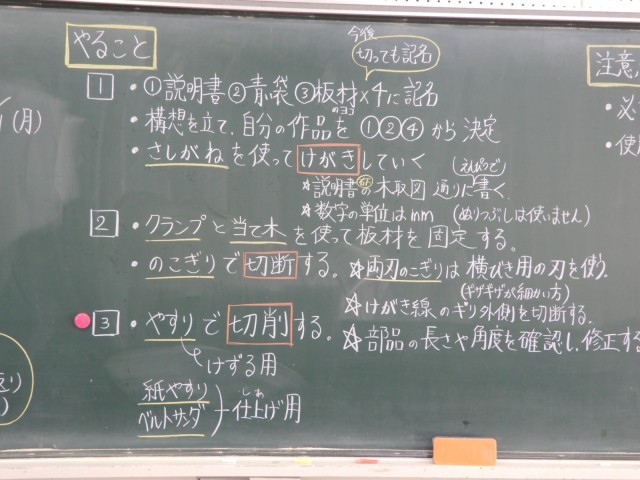 やること
今後
切っても記名
1 ・①説明書②青袋③板材×4に記名
・構想を立て、自分の作品を①②④から決定
・さしがねを使ってけがきしていく
(えんぴつで)
☆説明書の木取図通りに書く。
☆数字の単位はmm (ぬりつぶしは使いません)
2 ・クランプと当て木を使って板材を固定する。
・のこぎりで切断する。☆両刃のこぎりは横びき用の刃を使う。
(ギザギザが細かい方)
☆けがき線のギリ外側を切断する。
3 ・やすりで切削する。☆部品の長さや角度を確認し、修正する
けずる用
紙やすり
ベルトサンダ
しあ
仕上げ用
注意
・必
・使用
(月)